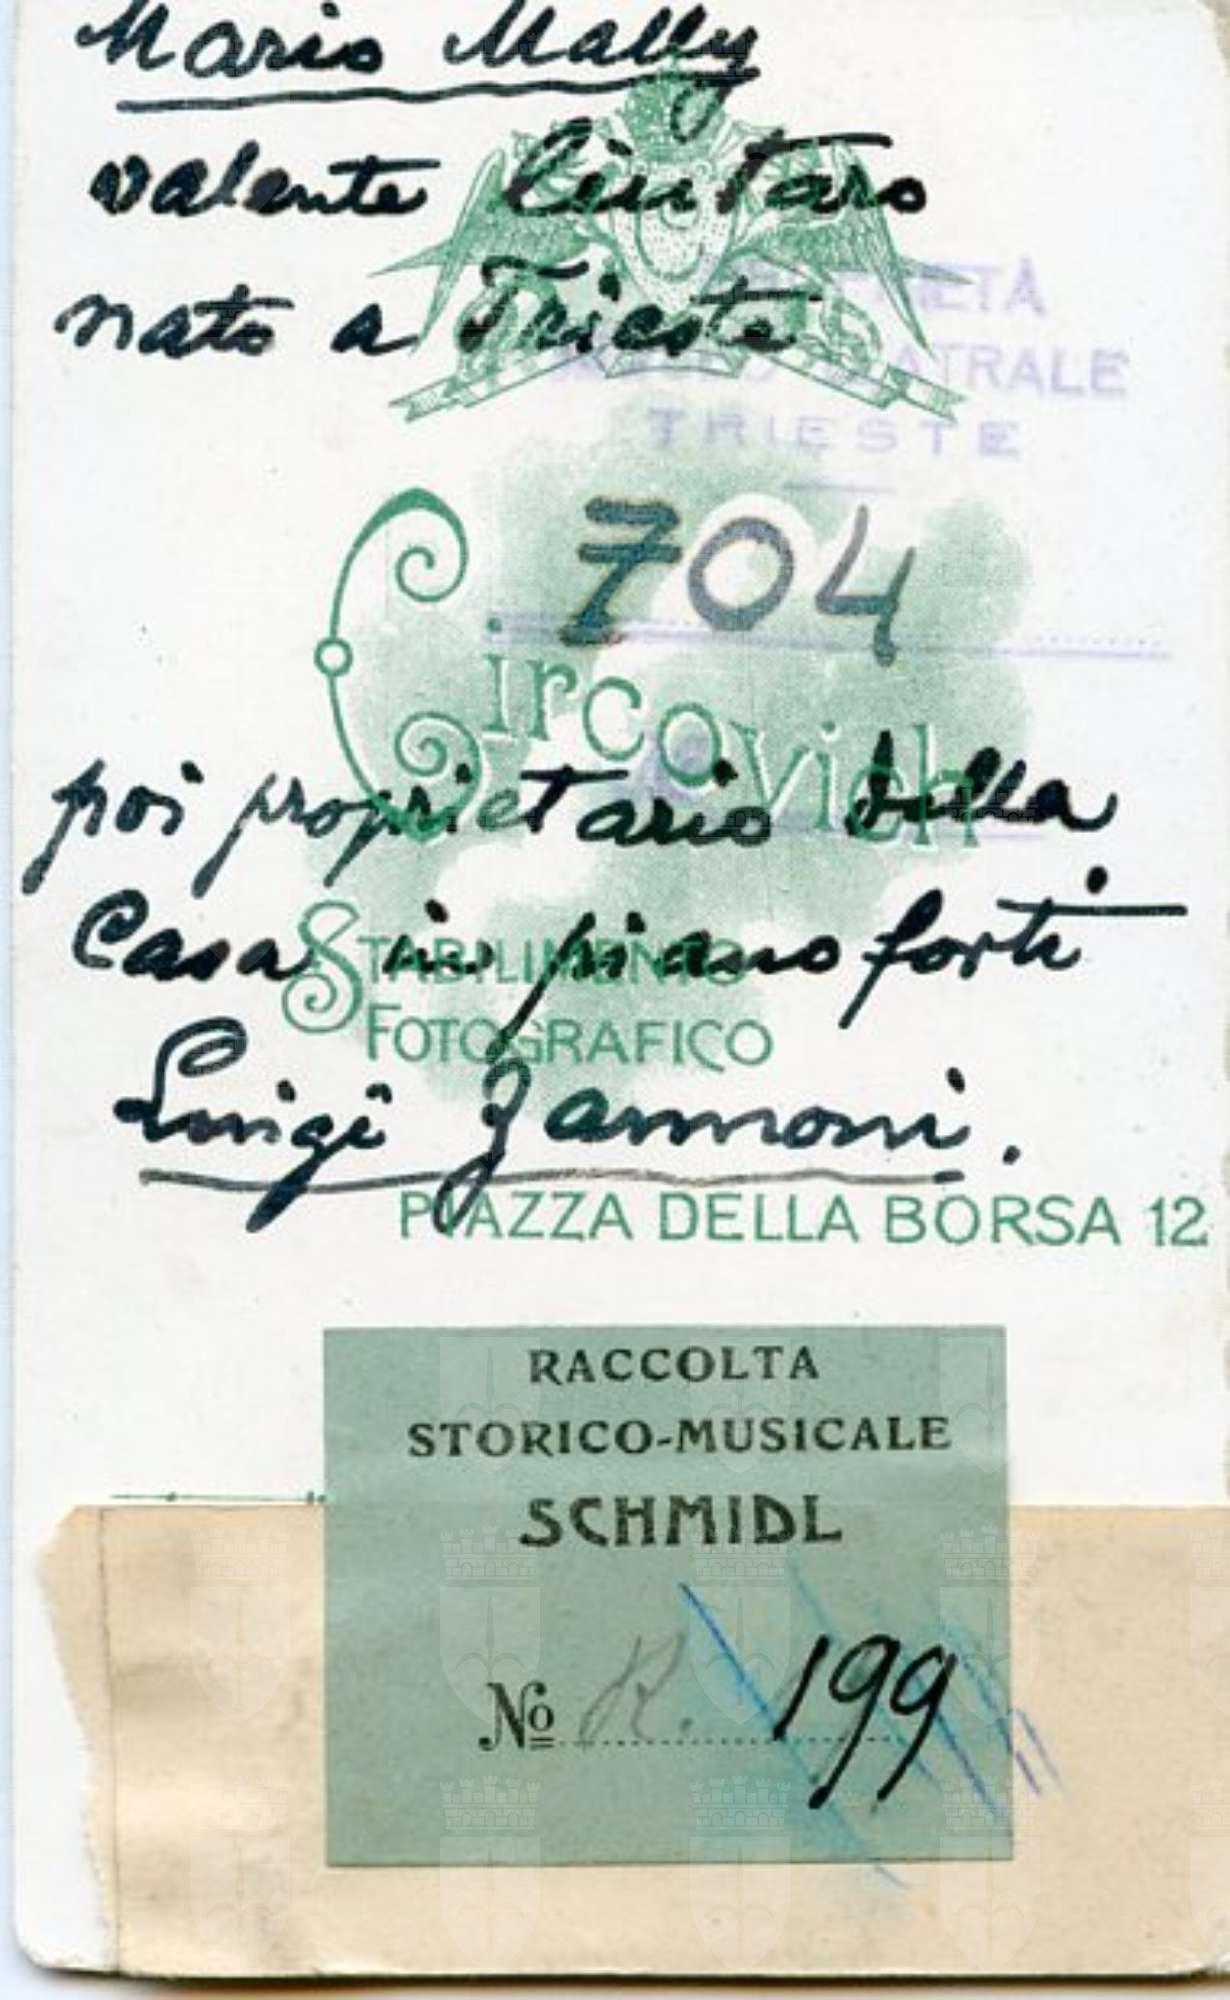 Mario Mally
valente liutaro
nato a Trieste
ATRALE
TRIESTE
704
Circovich
poi proprietario della
Casa in pianoforti
STABILIMENTO
FOTOGRAFICO
Luigi Zannoni.
PIAZZA DELLA BORSA 12
RACCOLTA
STORICO-MUSICALE
SCHMIDL
No R. 199